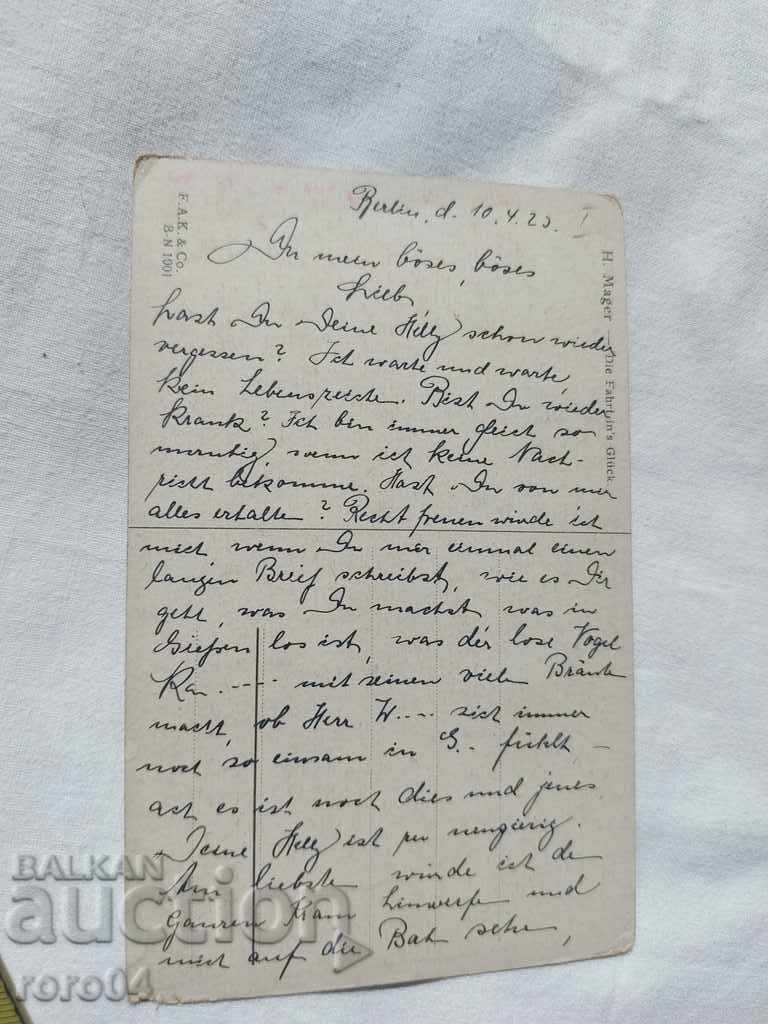 Berlin, d. 10.4.23. I
Du mein böses, böses
Lieb,
hast Du Deine Helly schon wieder
vergessen? Ich warte und warte,
kein Lebenszeichen. Bist Du wieder
krank? Ich bin immer gleich so
unruhig, wenn ich keine Nach-
richt bekomme. Hast Du von mir
alles erhalten? Recht freuen würde ich
mich, wenn Du mir einmal einen
langen Brief schreibst, wie es Dir
geht, was Du machst, was in
Gießen los ist, was der lose Vogel
Ra..---- mit seinen vielen Bräuten
macht, ob Herr W.... sich immer
noch so einsam in G.. fühlt, –
ach es ist noch dies und jenes.
Deine Helly ist neugierig.
Am liebsten würde ich den
ganzen Kram hinwerfen und
mich auf die Bah setzen,
F.A.K. & Co.
B-N 1001
H. Mager – Die Fahrt in's Glück
BALKAN
auction
roro04